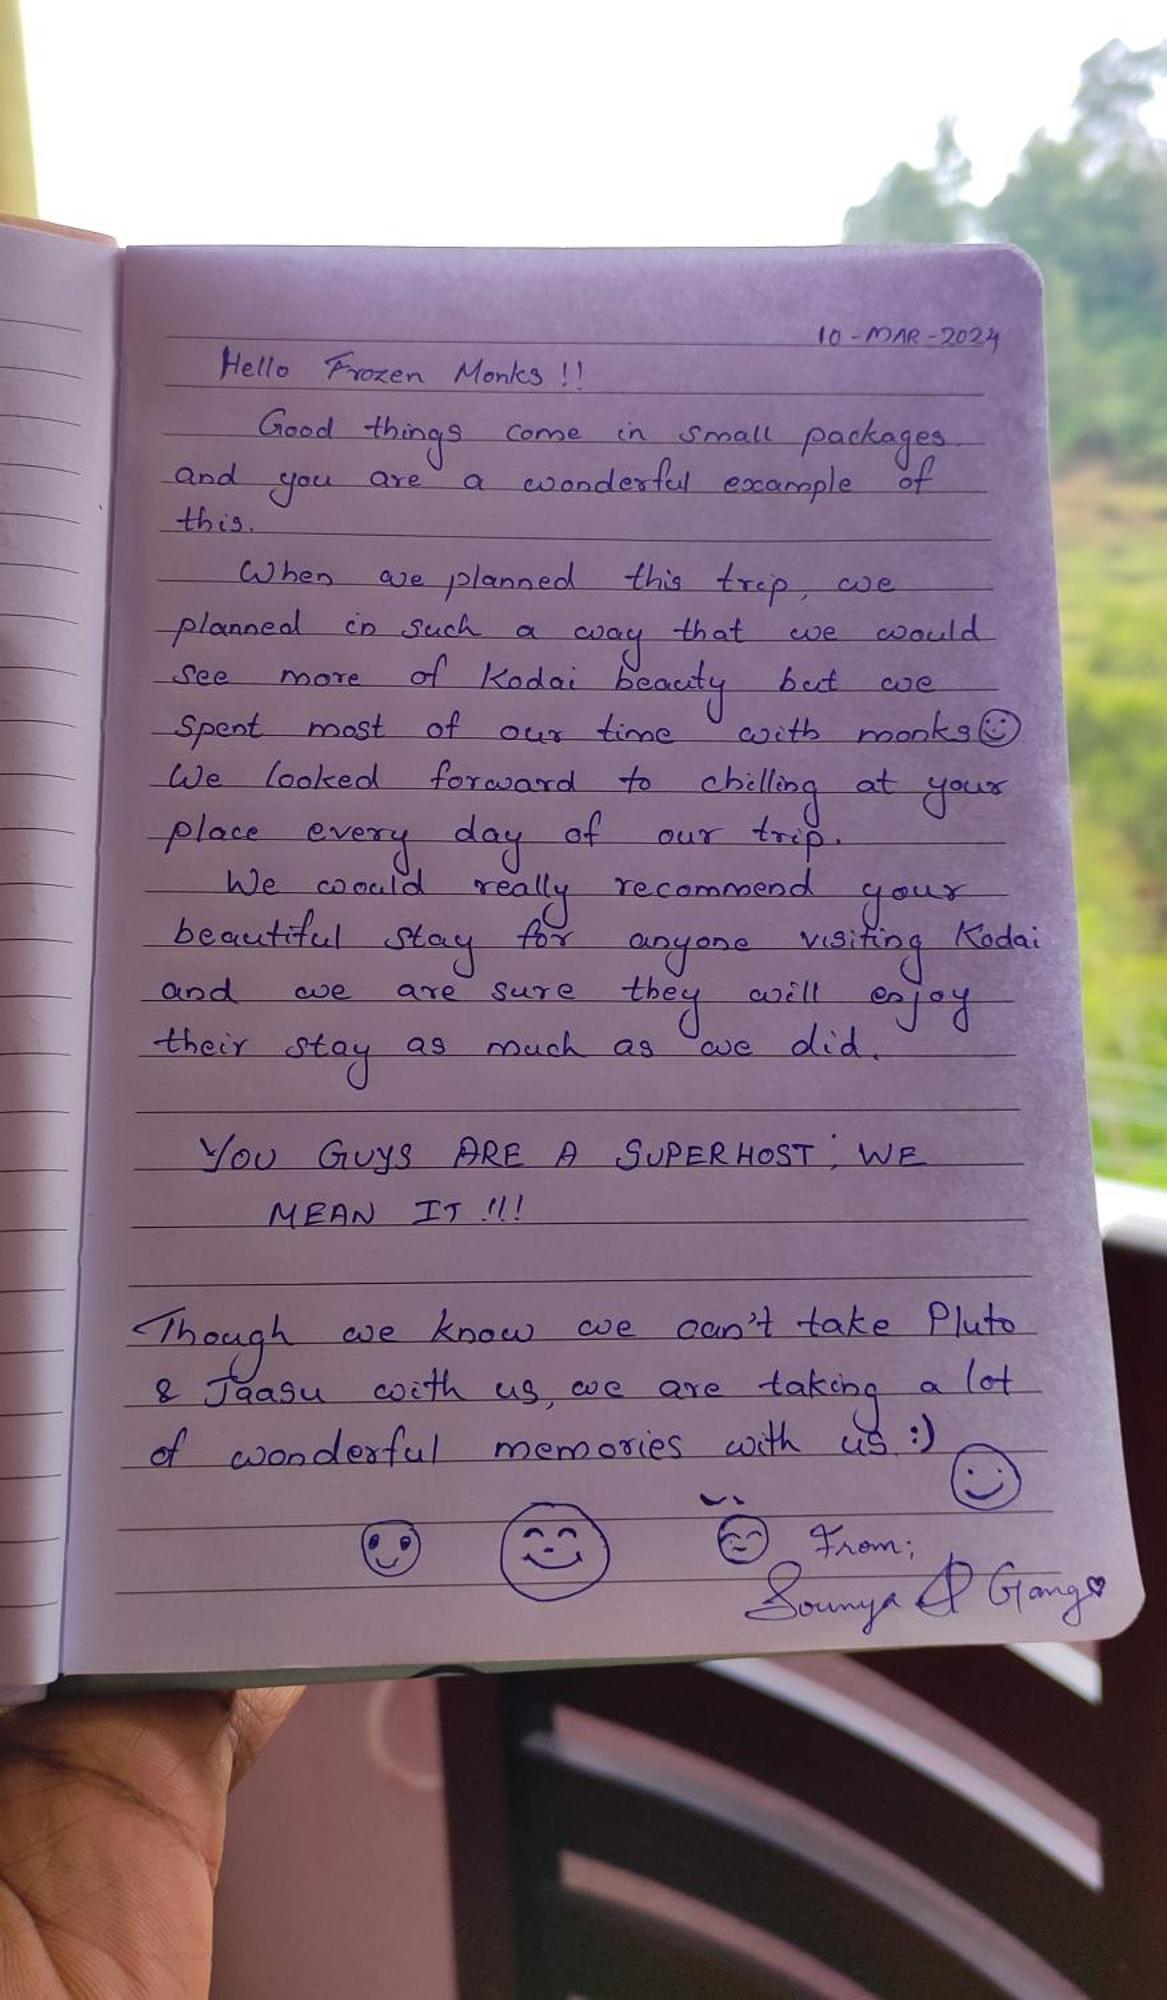 10-MAR-2024
Hello Frozen Monks !!
Good things come in small packages
and you are a wonderful example of
this.
When we planned this trip, we
planned in such a way that we would
see more of Kodai beauty but we
spent most of our time with monks☺
We looked forward to chilling at your
place every day of our trip.
We would really recommend your
beautiful stay for anyone visiting Kodai
and we are sure they will enjoy
their stay as much as we did.
YOU GUYS ARE A SUPERHOST; WE
MEAN IT !!!
Though we know we can't take Pluto
& Jaasu with us, we are taking a lot
of wonderful memories with us :)
From;
Sounya & Gang♥